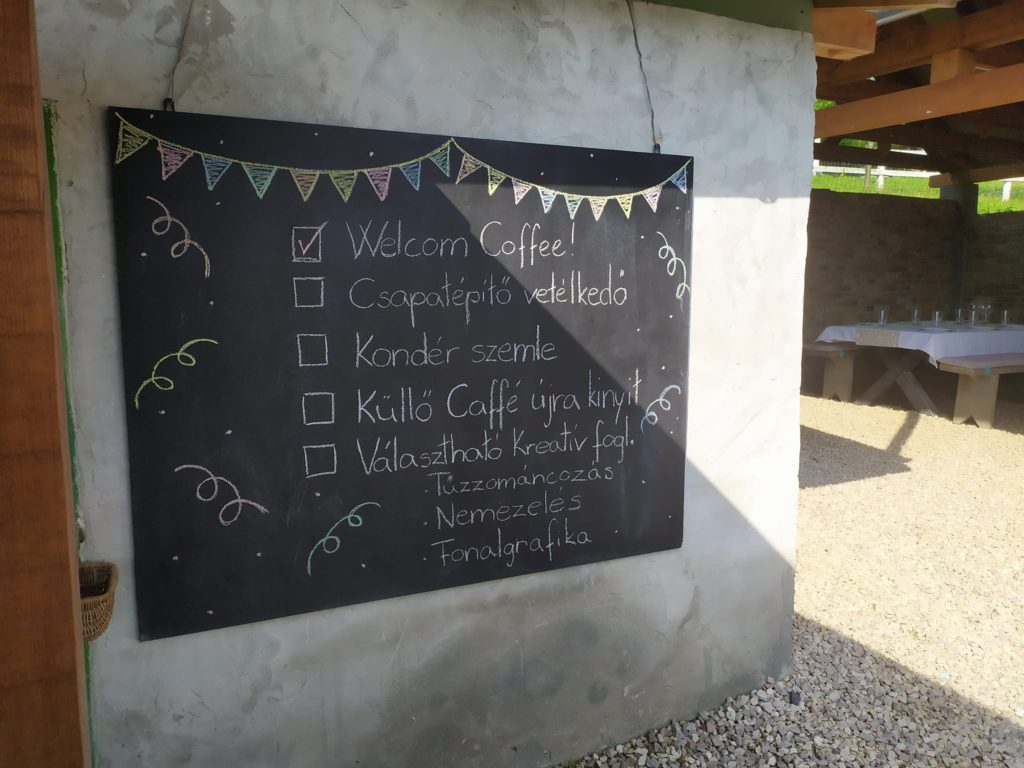 Welcom Coffee!
Csapatépítő vetélkedő
Kondér szemle
Küllő Caffé újra kinyit
Választható Kreatív fogl.
· Tűzzománcozás
· Nemezelés
· Fonalgrafika